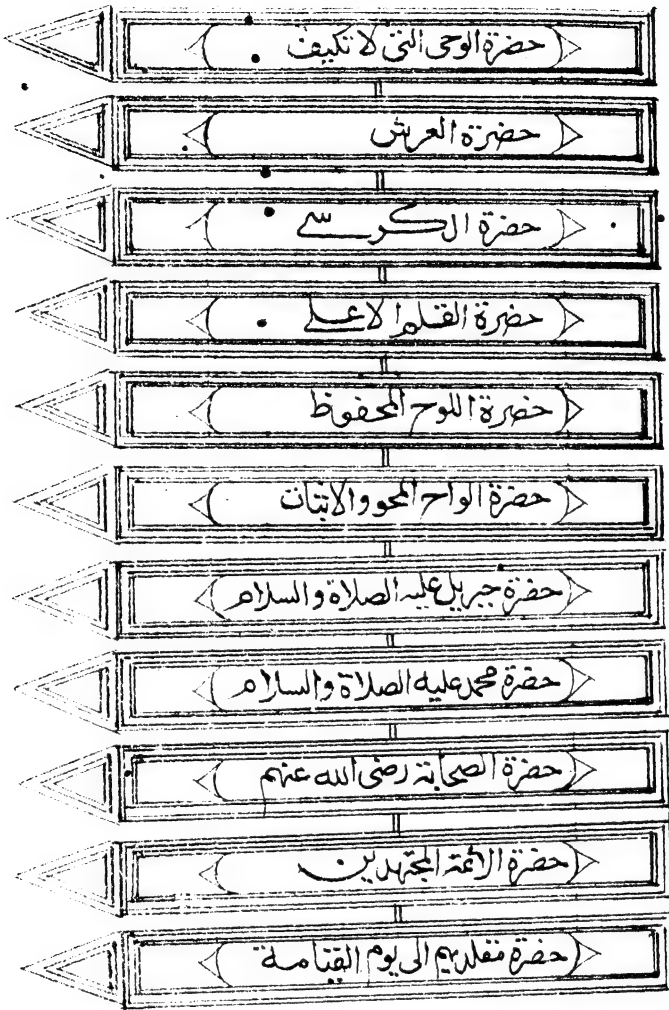 حضرة الوحي التي لا تكيف
حضرة العرش
حضرة الكرسي
حضرة القلم الاعلى
حضرة اللوح المحفوظ
حضرة الواح المحو والاثبات
حضرة جبريل عليه الصلاة والسلام
حضرة محمد عليه الصلاة والسلام
حضرة الصحابة رضى الله عنهم
حضرة الأئمة المجتهدين
حضرة مقلديهم الى يوم القيامة